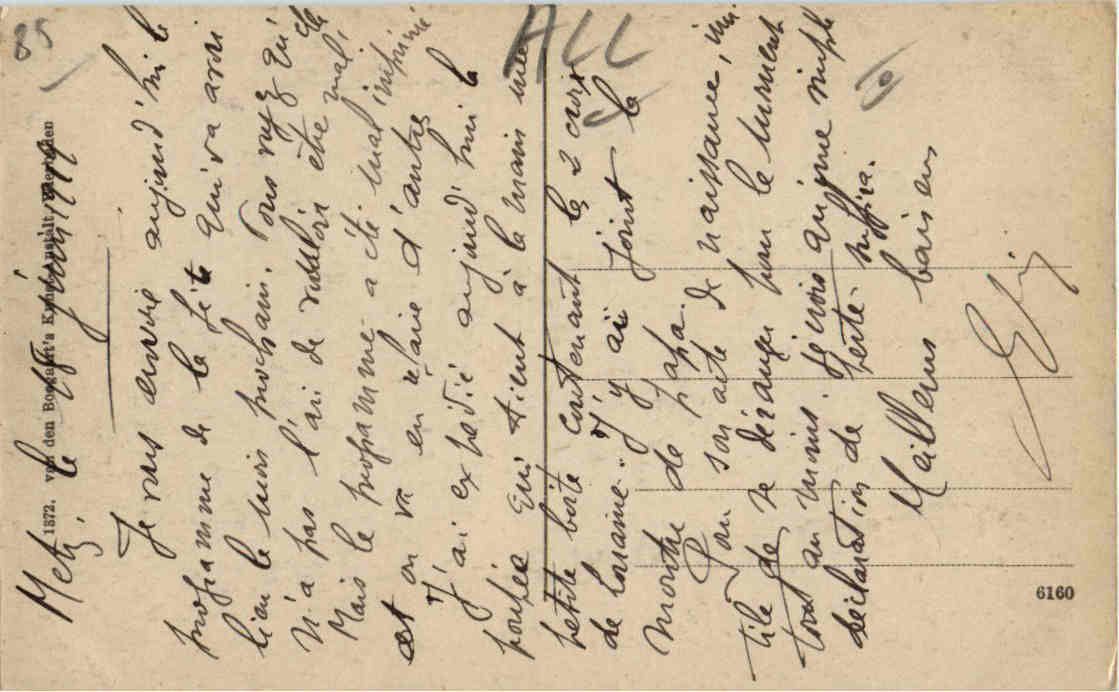 85
ALL
1872. van den Boogaart's Kunstanstalt Wiesbaden
Metz, le juin 1919
Je vous envoie aujourd'hui le
programme de la fête qui va avoir
lieu le mois prochain. Vous voyez qu'elle
n'a pas l'air de vouloir être mal,
Mais le programme a été mal imprimé
et on va en refaire d'autres
J'ai expédié aujourd'hui la
poupée qui tient à la main une
petite boîte contenant les 2 croix
de Lorraine. J'y ai joint la
montre de papa.
Pour son acte de naissance, inu-
tile de se déranger pour le moment
tout au moins. je crois qu'une simple
déclaration de perte suffira.
Meilleurs baisers
6160